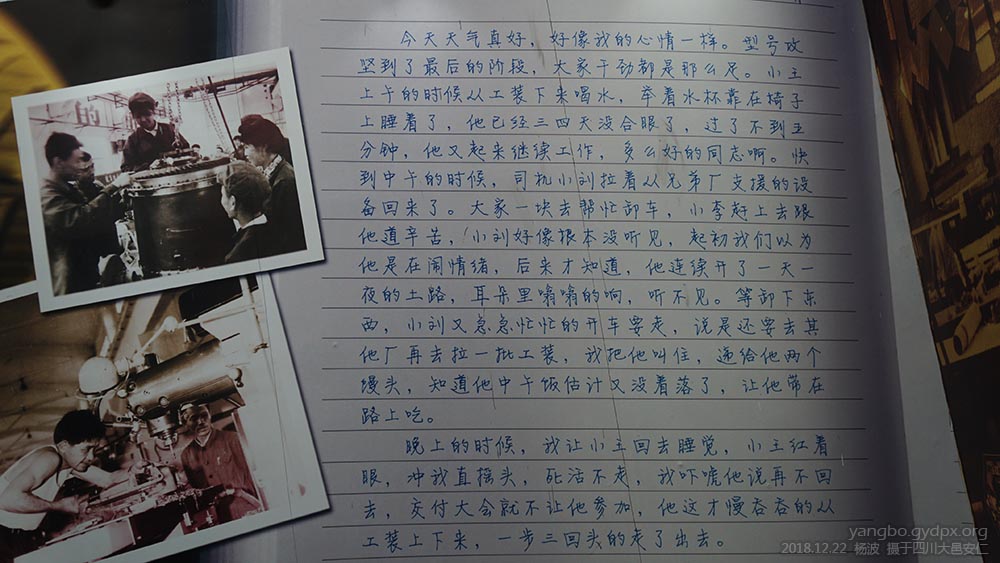 今天天气真好，好像我的心情一样。型号攻
坚到了最后的阶段，大家干劲都是那么足。小王
上午的时候从工装下来喝水，举着水杯靠在椅子
上睡着了，他已经三四天没合眼了，过了不到五
分钟，他又起来继续工作，多么好的同志啊。快
到中午的时候，司机小刘拉着从兄弟厂支援的设
备回来了。大家一块去帮忙卸车，小李赶上去跟
他道辛苦，小刘好像根本没听见，起初我们以为
他是在闹情绪，后来才知道，他连续开了一天一
夜的土路，耳朵里嗡嗡的响，听不见。等卸下东
西，小刘又急急忙忙的开车要走，说是还要去其
他厂再去拉一批工装，我把他叫住，递给他两个
馒头，知道他中午饭估计又没着落了，让他带在
路上吃。
晚上的时候，我让小王回去睡觉，小王红着
眼，冲我直摇头，死活不走，我吓唬他说再不回
去，交付大会就不让他参加，他这才慢吞吞的从
工装上下来，一步三回头的走了出去。
yangbo.gydpx.org
2018.12.22 杨波 摄于四川大邑安仁